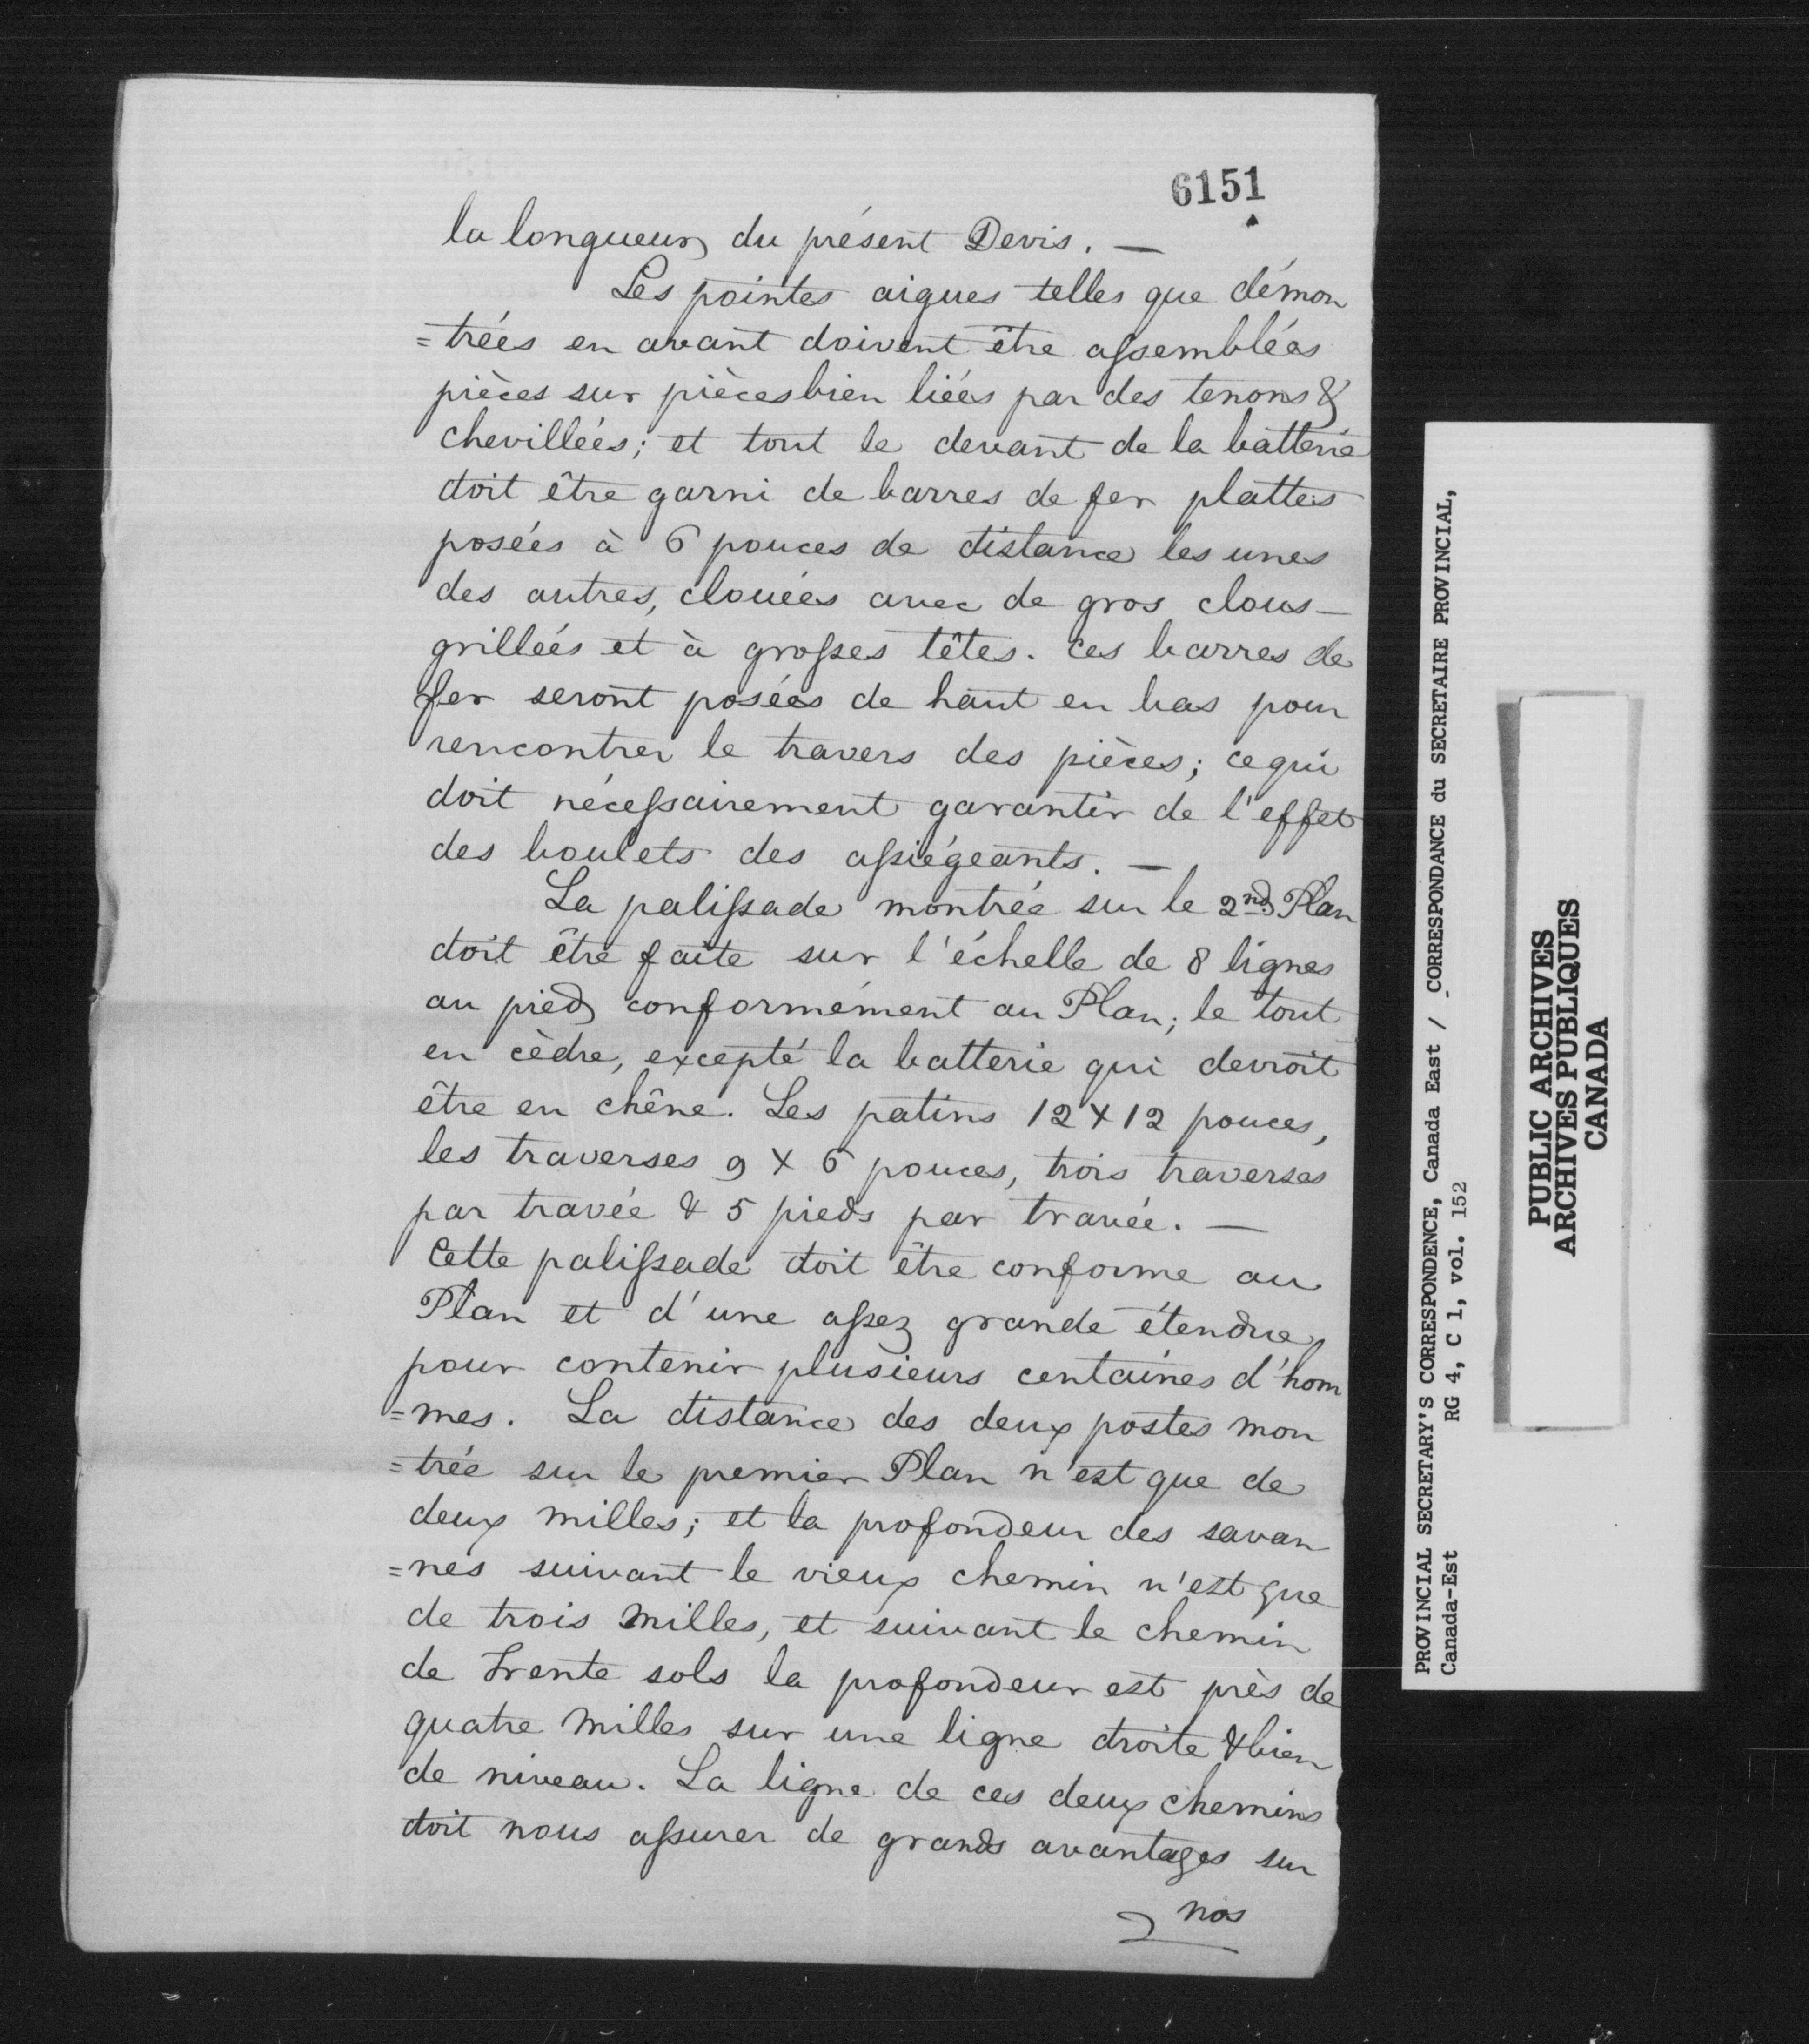 6151
la longueur du présent Devis. —
Les pointes aigues telles que démon
=trées en avant doivent être assemblées
pièces sur pièces bien liées par des tenons &
chevillées; et tout le devant de la batterie
doit être garni de barres de fer plattes
posées à 6 pouces de distance les unes
des autres, clouées avec de gros clous —
grillées et à grosses têtes. Ces barres de
fer seront posées de haut en bas pour
rencontrer le travers des pièces; ce qui
doit nécessairement garantir de l'effet
des boulets des assiégeants. —
La palissade montrée sur le 2nd Plan
doit être faite sur l'échelle de 8 lignes
au pied conformément au Plan; le tout
en cèdre, excepté la batterie qui devroit
être en chêne. Les patins 12 x 12 pouces,
les traverses 9 x 6 pouces, trois traverses
par travée & 5 pieds par travée. —
Cette palissade doit être conforme au
Plan et d'une assez grande étendue
pour contenir plusieurs centaines d'hom
=mes. La distance des deux postes mon
=trée sur le premier Plan n'est que de
deux milles; et la profondeur des savan
=nes suivant le vieux chemin n'est que
de trois milles, et suivant le chemin
de Trente sols la profondeur est près de
quatre milles sur une ligne droite & bien
de niveau. La ligne de ces deux chemins
doit nous assurer de grands avantages sur
nos
PROVINCIAL SECRETARY'S CORRESPONDENCE, Canada East / CORRESPONDANCE du SECRETAIRE PROVINCIAL,
Canada-Est RG 4, C 1, vol. 152
PUBLIC ARCHIVES
ARCHIVES PUBLIQUES
CANADA